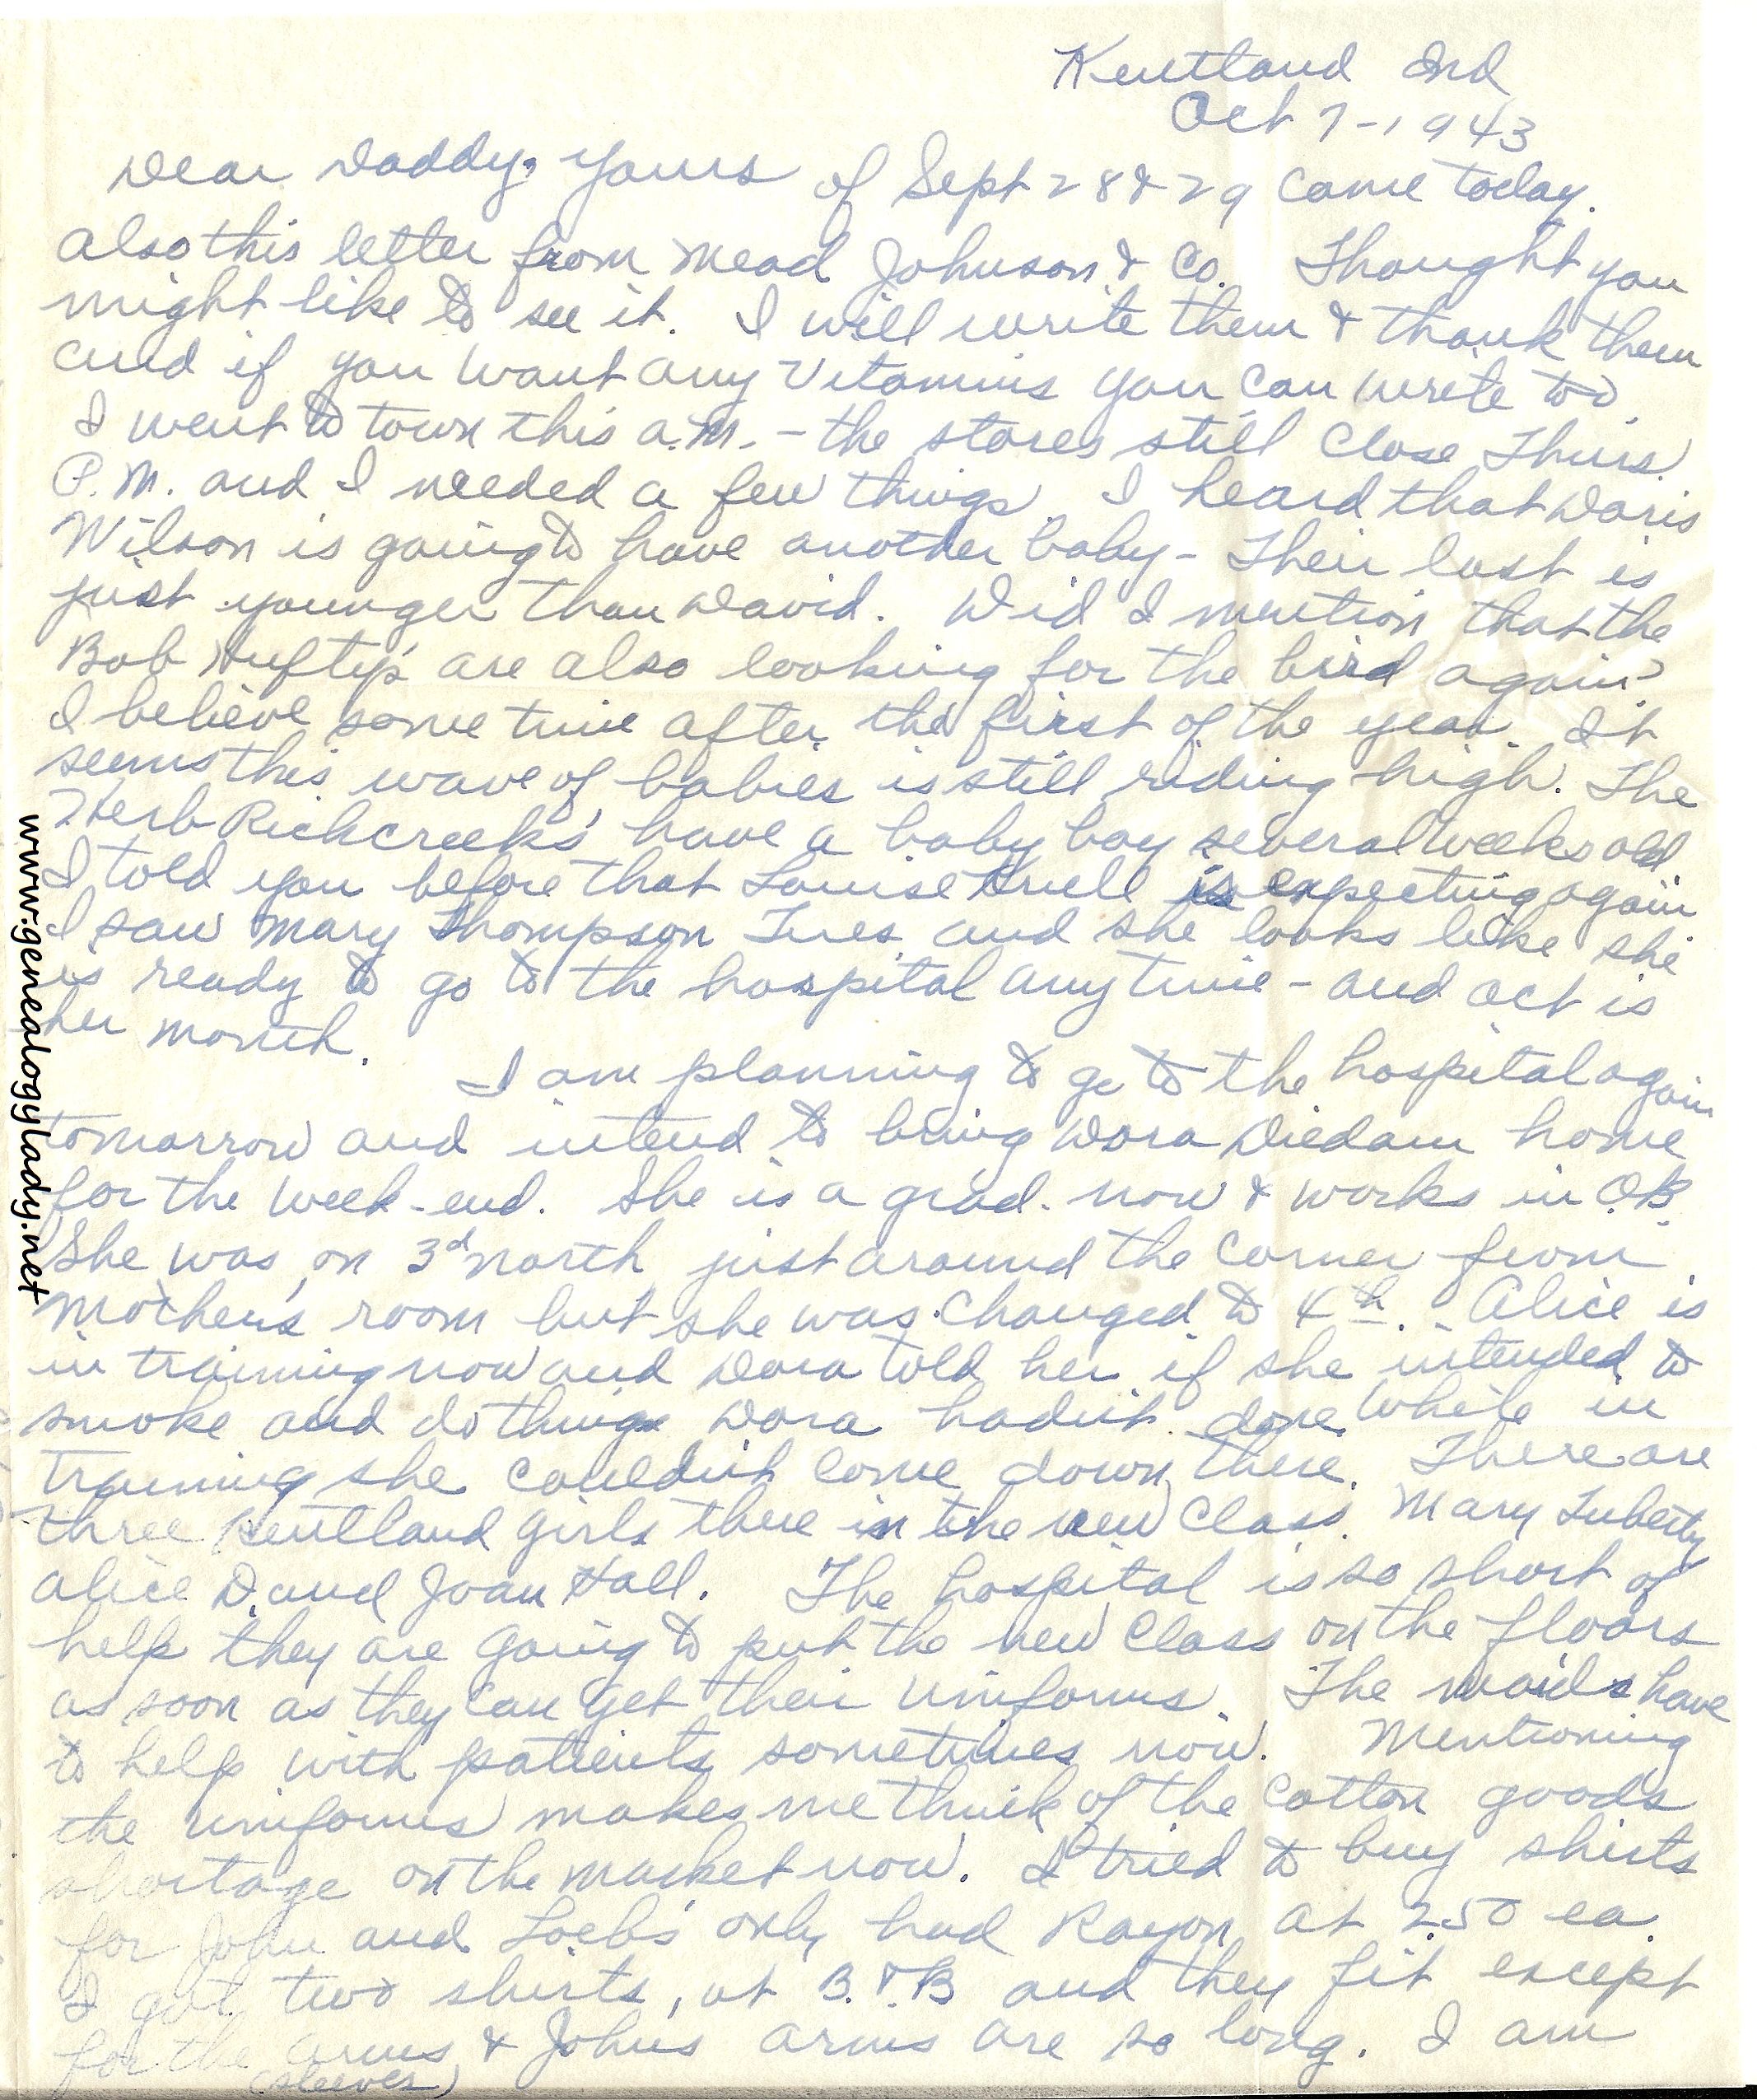 Kentland Ind
Oct 7-1943
Dear Daddy, Yours of Sept 28 & 29 came today.
Also this letter from Mead Johnson & Co. Thought you
might like to see it. I will write them & thank them
and if you want any vitamins you can write too.
I went to town this a.m. - the stores still close Thurs
P.M. and I needed a few things. I heard that Doris
Wilson is going to have another baby - Their last is
just younger than David. Did I mention that the
Bob Hufty's are also looking for the bird again?
I believe some time after the first of the year. It
seems this wave of babies is still riding high. The
Herb Rickcreek's have a baby boy several weeks old
I told you before that Louise is expecting again
I saw Mary Thompson Ines and she looks like she
is ready to go to the hospital any time - and Oct is
her month.
I am planning to go to the hospital again
tomorrow and intend to bring Dora Diedam home
for the week-end. She is a grad. now & works in O.B.
She was on 3d north just around the corner from
Mother's room but she was changed to 4th. - Alice is
in training now and Dora told her if she intended to
smoke and do things Dora hadn't done while in
training she couldn't come down there. There are
three Kentland girls there in the new class. Mary Luberty
Alice D. and Joan Hall. The hospital is so short of
help they are going to put the new class on the floors
as soon as they can get their uniforms. The maids have
to help with patients sometimes now. Mentioning
the uniforms makes me think of the cotton goods
shortage on the market now. I tried to buy shirts
for John and Loeb's only had Rayon at 2.50 ea.
I got two shirts, at B.&B and they fit except
for the arms & Johns arms are so long. I am
(sleeves)
www.genealogylady.net